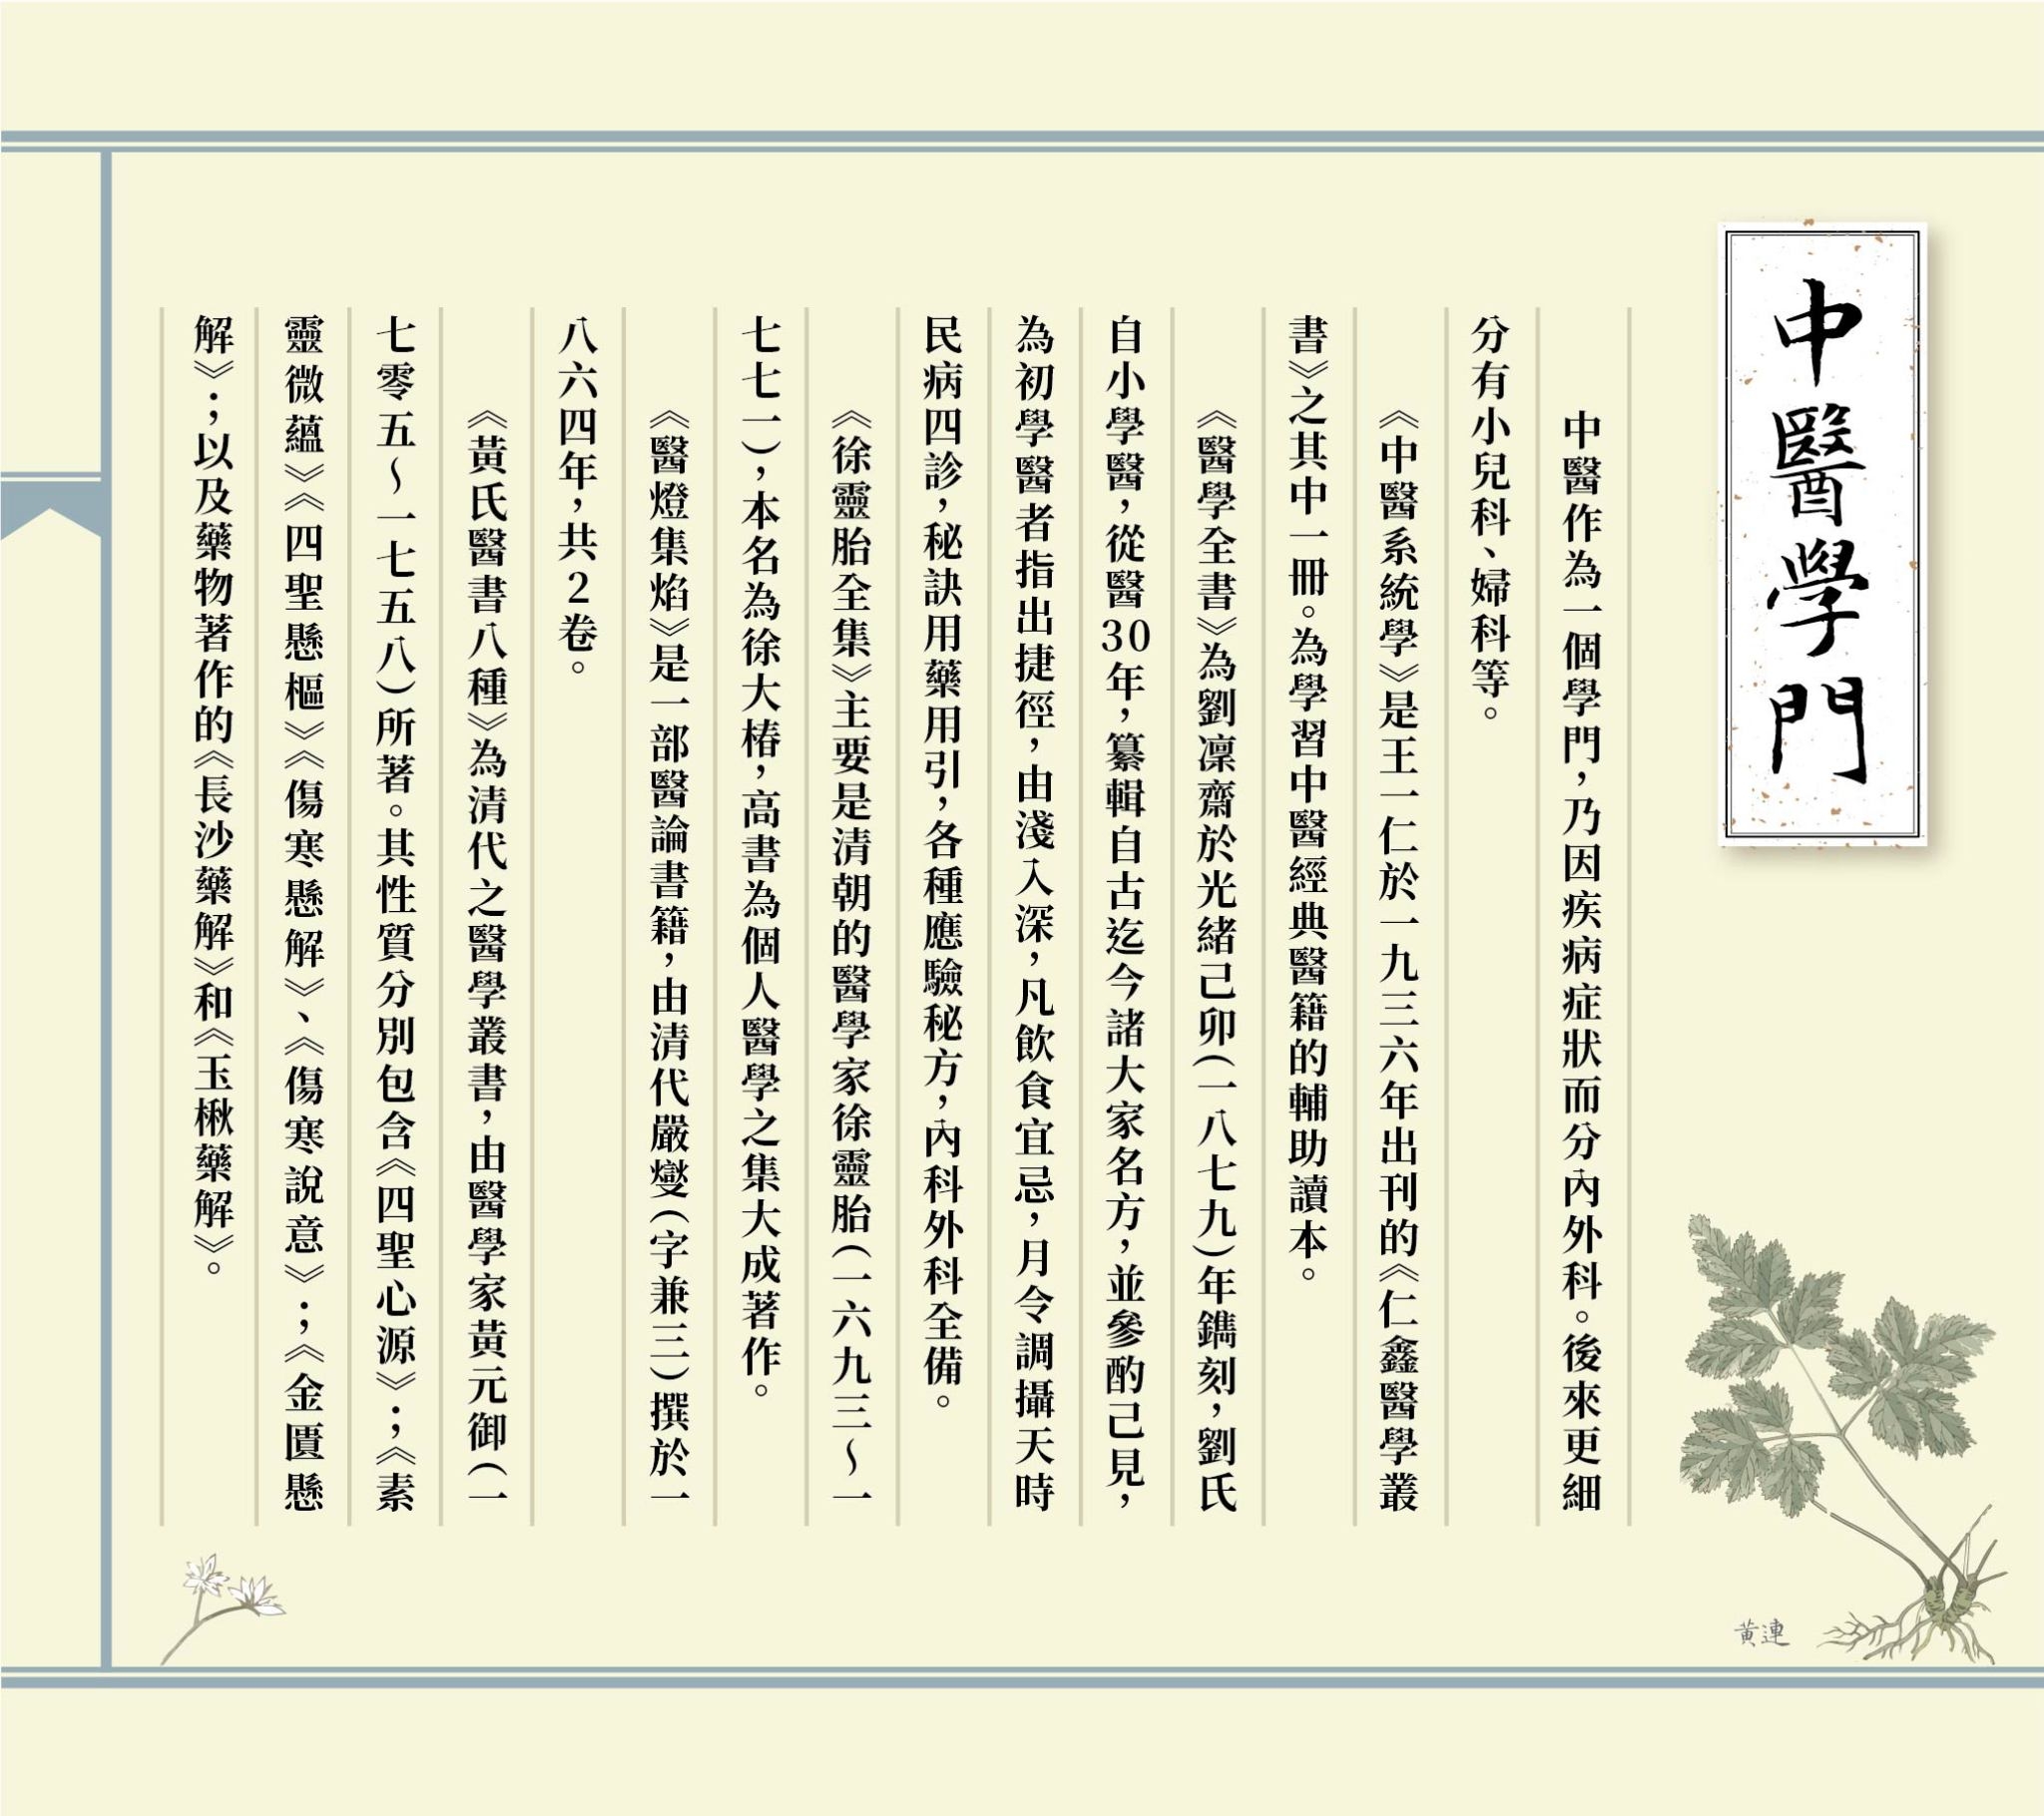 中醫學門
中醫作為一個學門，乃因疾病症狀而分內外科。後來更細
分有小兒科、婦科等。
《中醫系統學》是王一仁於一九三六年出刊的《仁鑫醫學叢
書》之其中一冊。為學習中醫經典醫籍的輔助讀本。
《醫學全書》為劉凜齋於光緒己卯（一八七九）年鐫刻，劉氏
自小學醫，從醫30年，纂輯自古迄今諸大家名方，並參酌己見，
為初學醫者指出捷徑，由淺入深，凡飲食宜忌，月令調攝天時
民病四診，秘訣用藥用引，各種應驗秘方，內科外科全備。
《徐靈胎全集》主要是清朝的醫學家徐靈胎（一六九三～一
七七一），本名為徐大椿，高書為個人醫學之集大成著作。
《醫燈集焰》是一部醫論書籍，由清代嚴燮（字兼三）撰於一
八六四年，共2卷。
《黃氏醫書八種》為清代之醫學叢書，由醫學家黃元御（一
七零五～一七五八）所著。其性質分別包含《四聖心源》；《素
靈微蘊》《四聖懸樞》《傷寒懸解》、《傷寒說意》；《金匱懸
解》；以及藥物著作的《長沙藥解》和《玉楸藥解》。
黄連